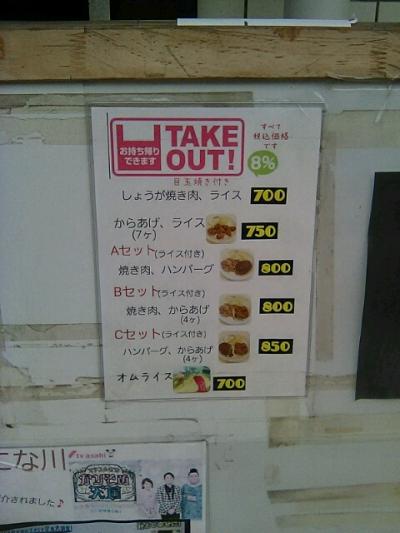 お持ち帰り
できます
TAKE
OUT!
すべて
税込価格
です
8%
目玉焼き付き
しょうが焼き肉、ライス 700
からあげ、ライス
(7ヶ) 750
Aセット(ライス付き)
焼き肉、ハンバーグ 800
Bセット(ライス付き)
焼き肉、からあげ 800
(4ヶ)
Cセット(ライス付き)
ハンバーグ、からあげ 850
(4ヶ)
オムライス 700
な川
tv asahi
介されました♪